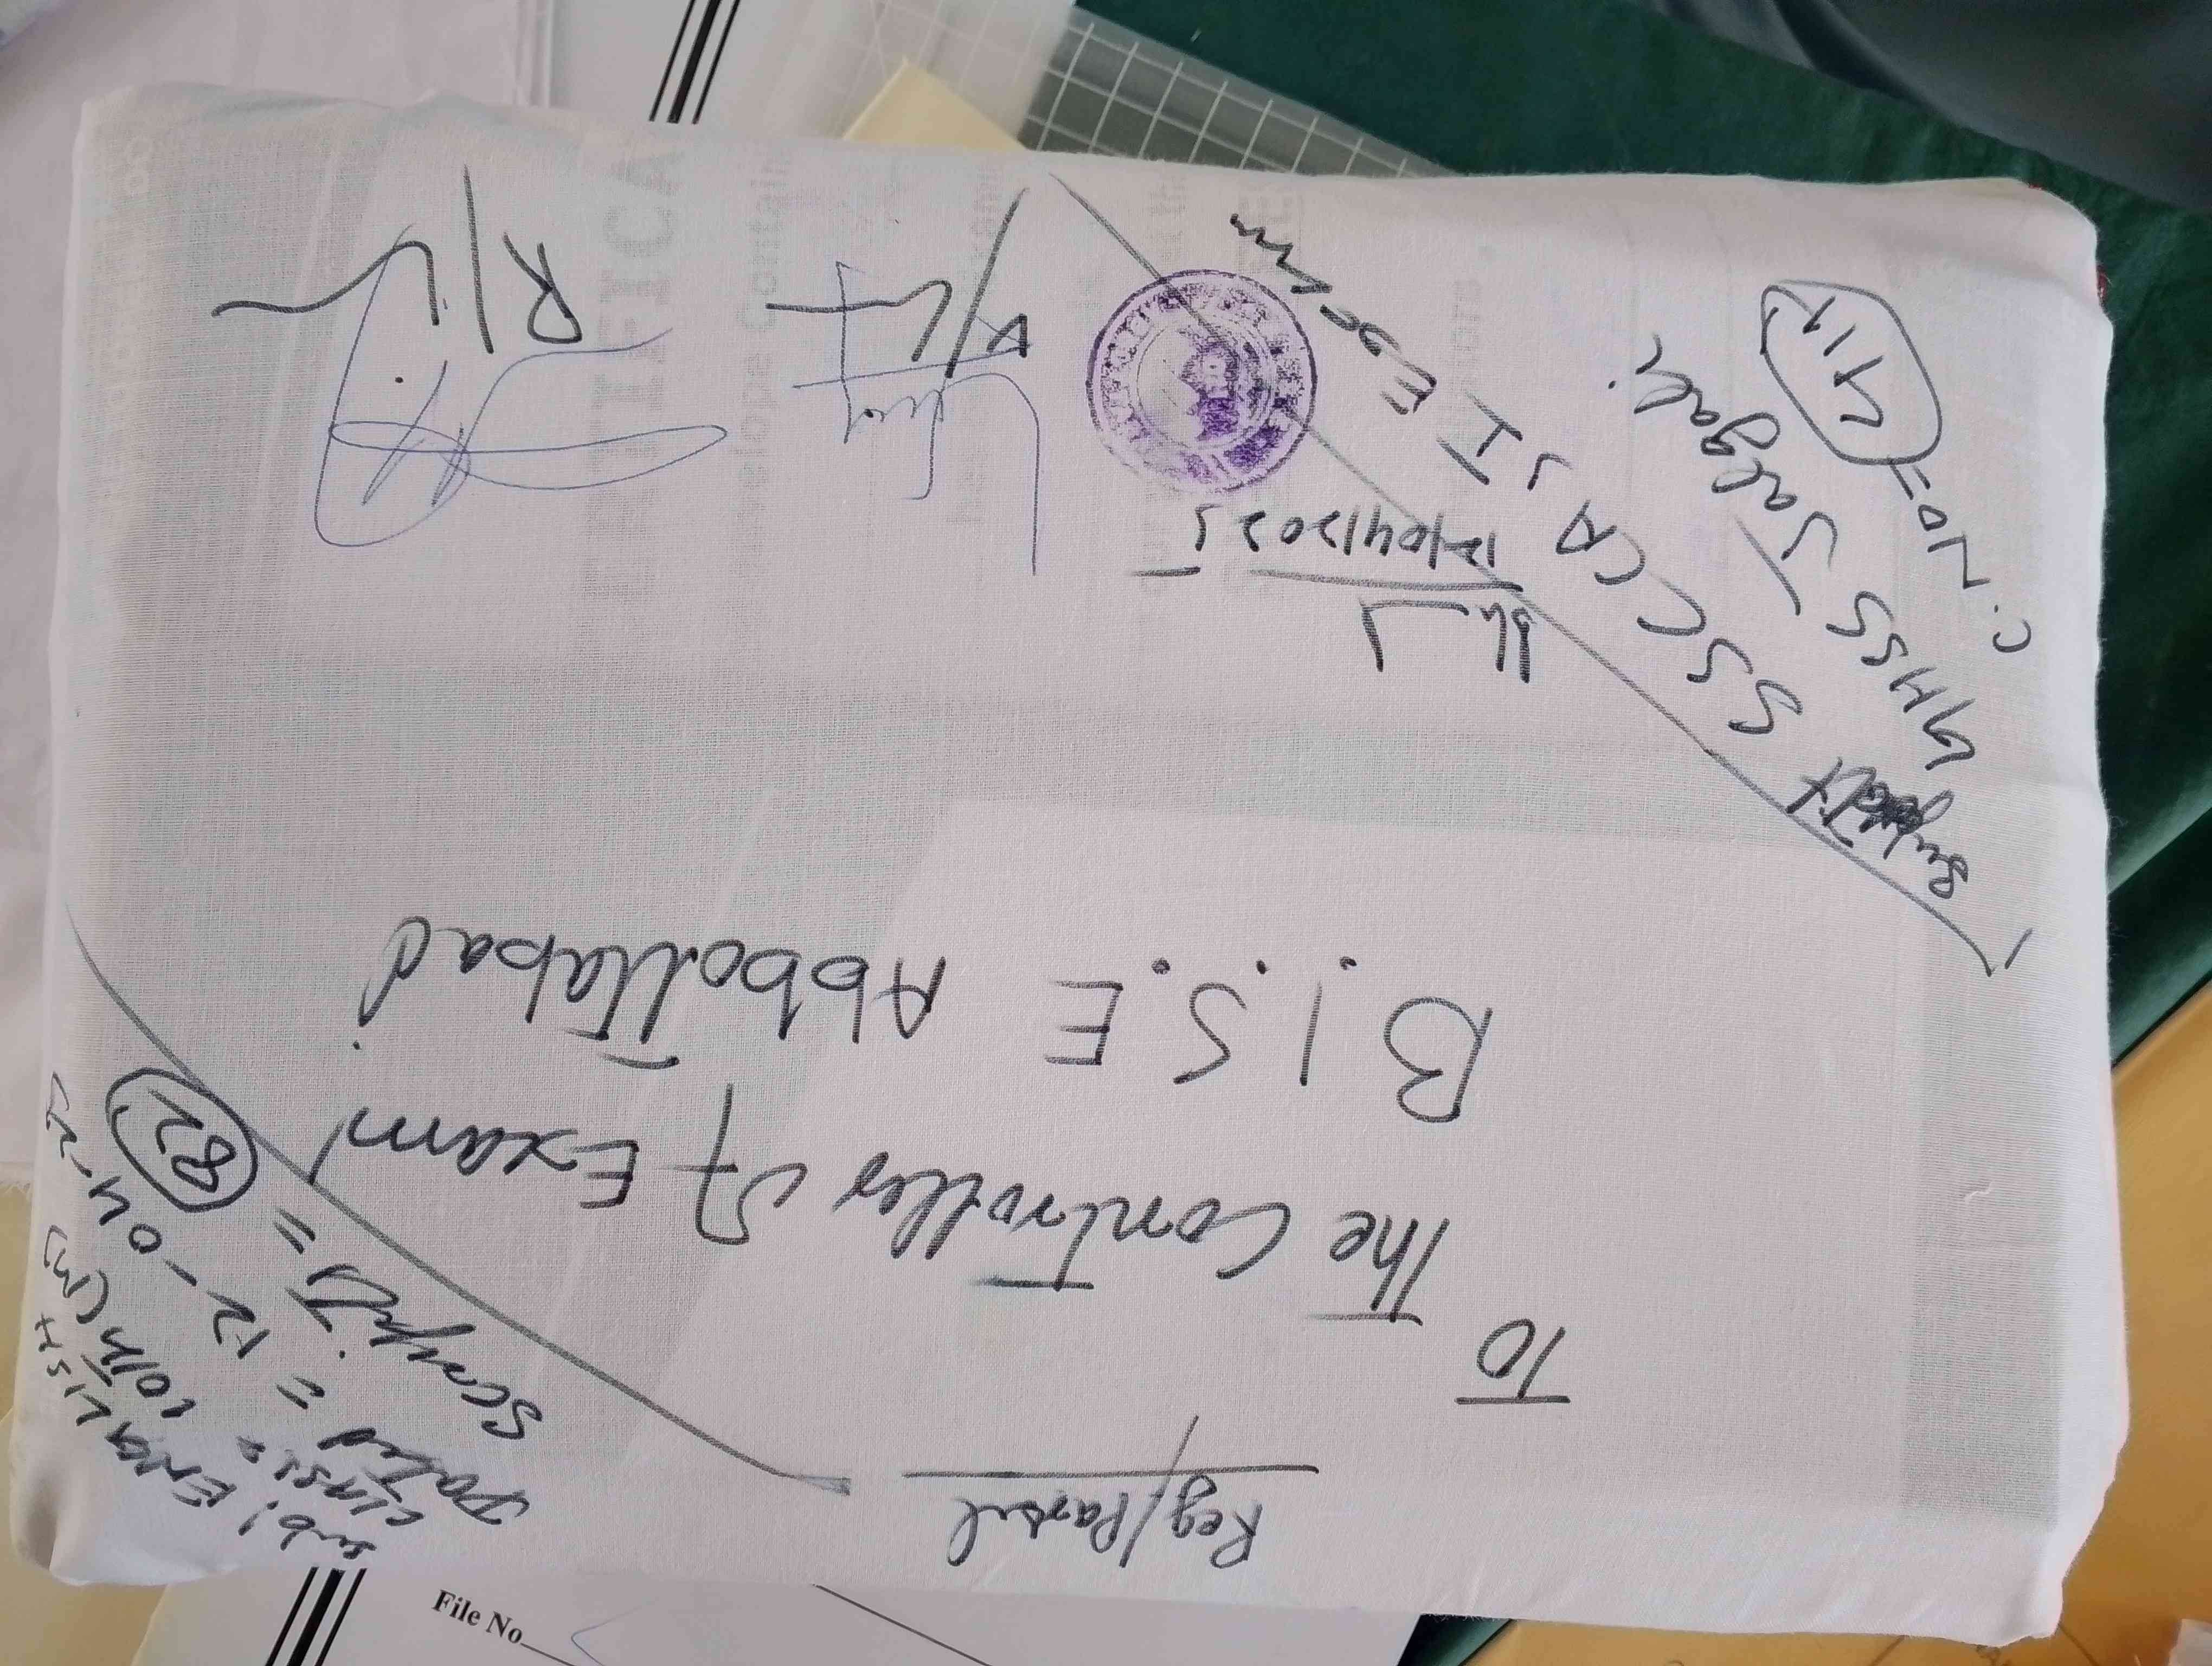 Reg/Parsel
To
The Controller of Exam!
B.I.S.E Abbottabad.
Sub! ENGLISH
Class = 10th (M)
Dated = 12-04-25
Scripts = 82
SSC (A), I Exam
GHSS Jalgali
C.NO = 
12/04/2025
R/L
R/L
File No